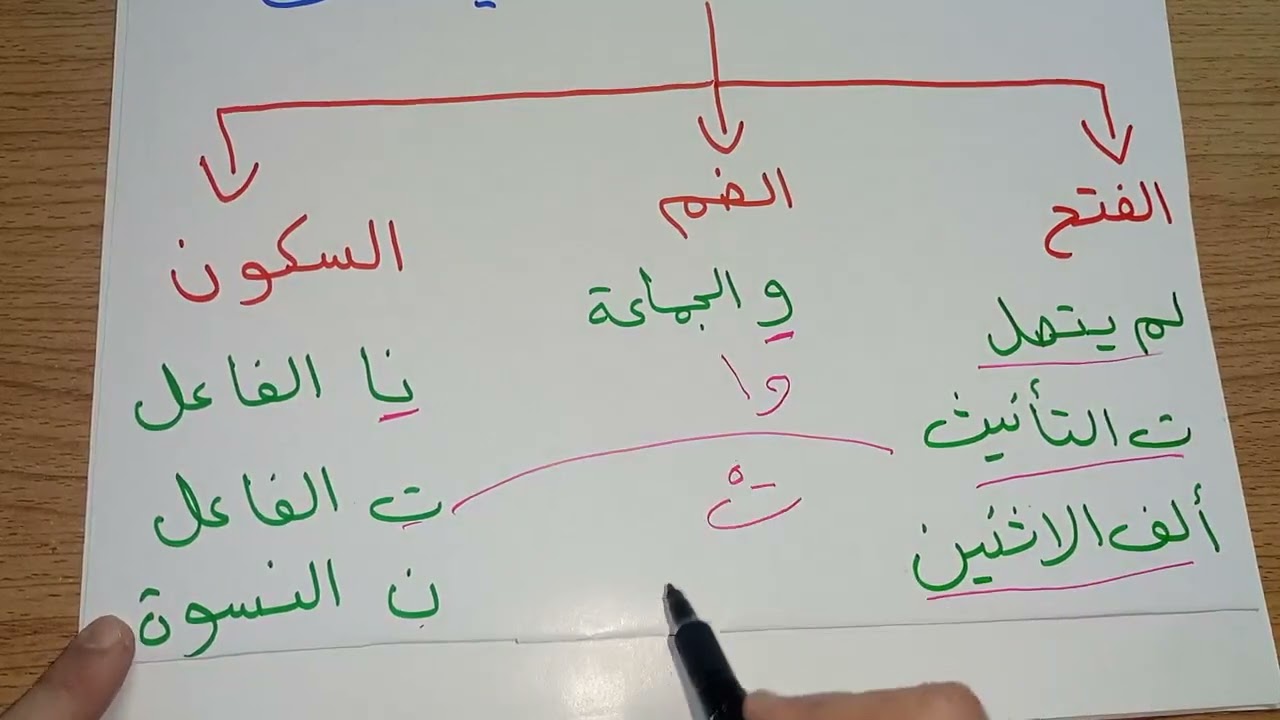 الفتح
لم يتصل
ت التأنيث
ألف الاثنين
الضم
و الجماعة
وا
تْ
السكون
نا الفاعل
ت الفاعل
ن النسوة